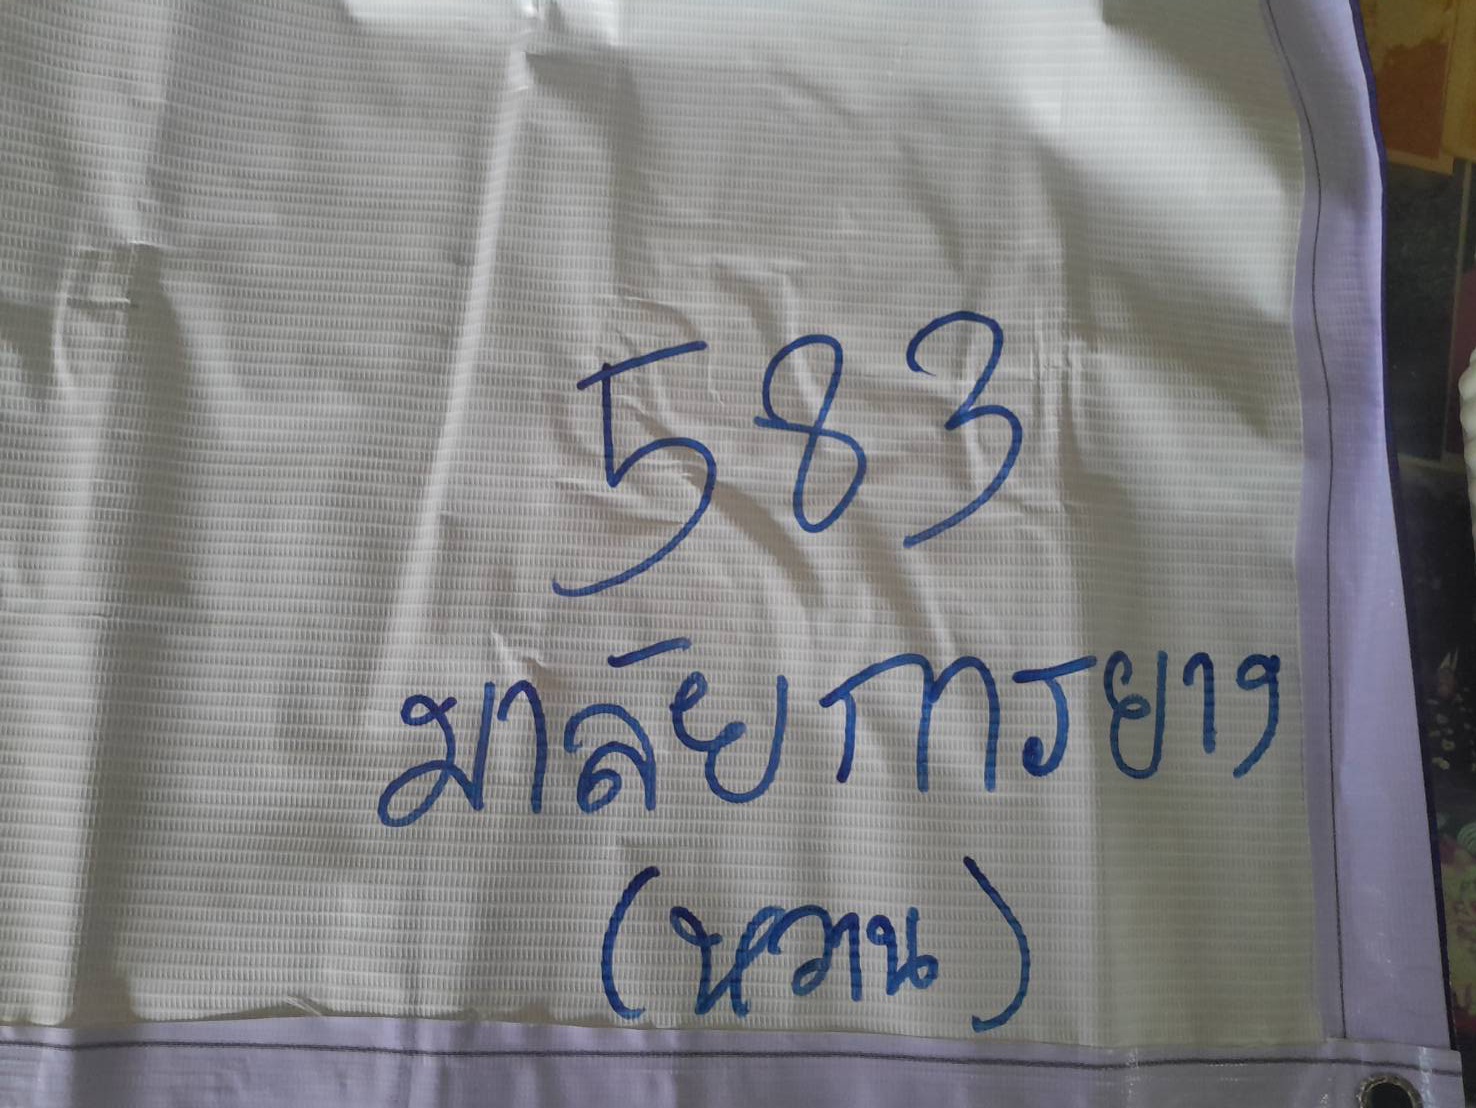 583
มาลัยการยาง
(หวาน)